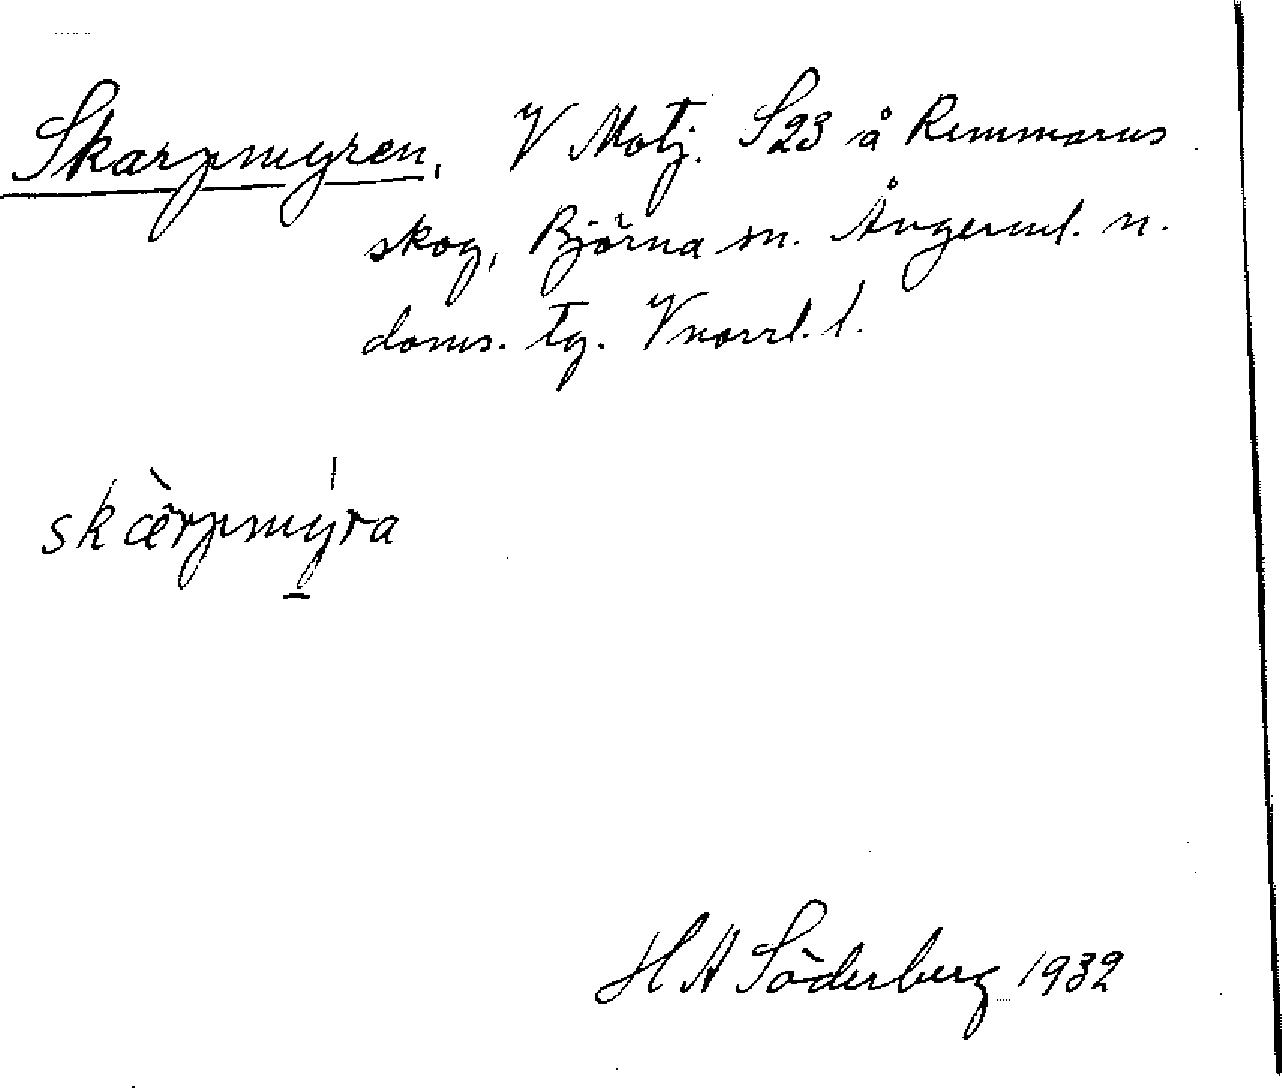 Skarpmyren, V Motj. S23 å Remmarns
skog, Björna sn. Ångerml. n.
doms. tg. Vnorrl. l.
skærpmyra
H A Söderberg 1932